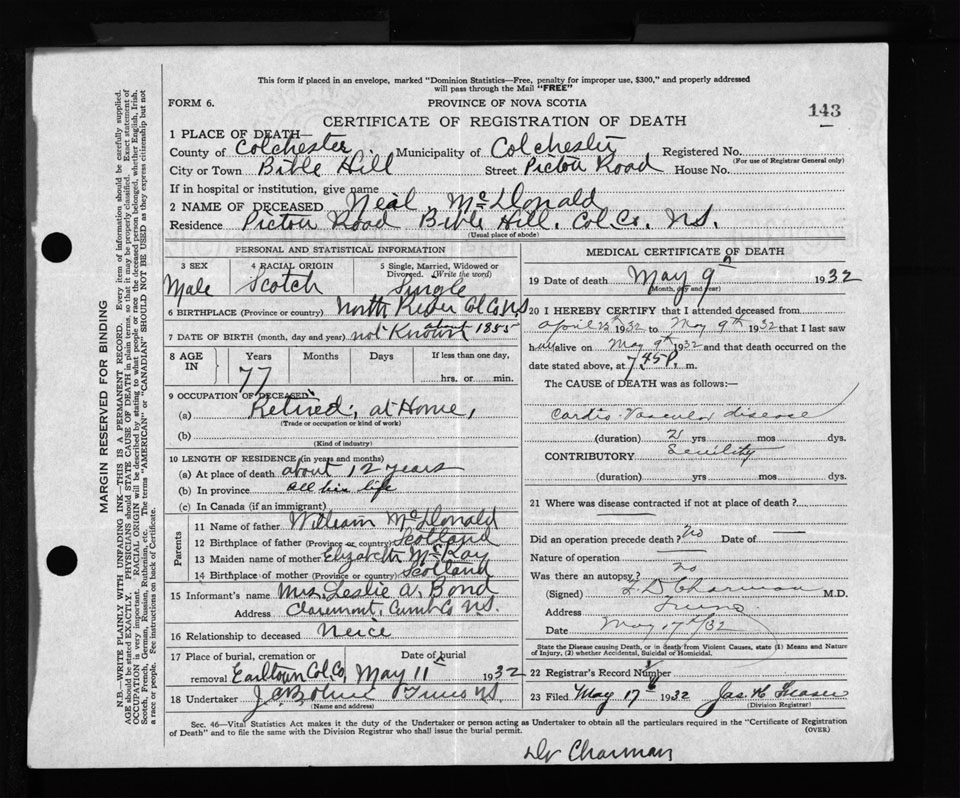 This form if placed in an envelope, marked "Dominion Statistics—Free, penalty for improper use, $300," and properly addressed
will pass through the Mail "FREE"
FORM 6.
PROVINCE OF NOVA SCOTIA
143
CERTIFICATE OF REGISTRATION OF DEATH
1 PLACE OF DEATH—
County of Colchester Municipality of Colchester Registered No.
(For use of Registrar General only)
City or Town Bible Hill Street Pictou Road House No.
If in hospital or institution, give name
2 NAME OF DECEASED Neal McDonald
Residence Pictou Road Bible Hill, Col. Co. N.S.
(Usual place of abode)
PERSONAL AND STATISTICAL INFORMATION
3 SEX Male
4 RACIAL ORIGIN Scotch
5 Single, Married, Widowed or Divorced. (Write the word) Single
6 BIRTHPLACE (Province or country) North River Col Co NS
7 DATE OF BIRTH (month, day and year) not Known about 1855
8 AGE IN Years 77 Months Days If less than one day, hrs. or min.
9 OCCUPATION OF DECEASED
(a) Retired, at Home,
(Trade or occupation or kind of work)
(b)
(Kind of industry)
10 LENGTH OF RESIDENCE (in years and months)
(a) At place of death about 12 years
(b) In province all his life
(c) In Canada (if an immigrant)
Parents
11 Name of father William McDonald
12 Birthplace of father (Province or country) Scotland
13 Maiden name of mother Elizabeth McKay
14 Birthplace of mother (Province or country) Scotland
15 Informant's name Mrs Leslie A. Bond
Address Claremont, Cumb Co NS.
16 Relationship to deceased Neice
17 Place of burial, cremation or removal Earltown Col. Co, Date of burial May 11 1932
18 Undertaker Truro NS.
(Name and address)
MEDICAL CERTIFICATE OF DEATH
19 Date of death May 9th 1932
(Month, day and year)
20 I HEREBY CERTIFY that I attended deceased from
April 1932 to May 9th 1932 that I last saw
him alive on May 9th 1932 and that death occurred on the
date stated above, at 7.45 P. m.
The CAUSE of DEATH was as follows:
Cardio-Vascular disease
(duration) 2 yrs mos dys.
CONTRIBUTORY Senility
(duration) yrs mos dys.
21 Where was disease contracted if not at place of death?
Did an operation precede death? no Date of —
Nature of operation —
Was there an autopsy? no
(Signed) Charman M.D.
Address Truro
Date May 17th/32
State the Disease causing Death, or in death from Violent Causes, state (1) Means and Nature
of Injury, (2) whether Accidental, Suicidal or Homicidal.
22 Registrar's Record Number
23 Filed May 17th 1932 Jas. H. Fraser
(Division Registrar)
Sec. 46—Vital Statistics Act makes it the duty of the Undertaker or person acting as Undertaker to obtain all the particulars required in the "Certificate of Registration
of Death" and to file the same with the Division Registrar who shall issue the burial permit.
(OVER)
Dr Charman
MARGIN RESERVED FOR BINDING
N.B.—WRITE PLAINLY WITH UNFADING INK—THIS IS A PERMANENT RECORD. Every item of information should be carefully supplied.
AGE should be stated EXACTLY. PHYSICIANS should STATE CAUSE OF DEATH in plain terms, so that it may be properly classified. Exact statement of
OCCUPATION is very important. RACIAL ORIGIN will be described by stating to what people or race the deceased person belonged, whether English, Irish,
Scotch, French, German, Russian, Ruthenian, etc. The terms "AMERICAN" or "CANADIAN" SHOULD NOT BE USED as they express citizenship but not
a race or people. See instructions on back of Certificate.